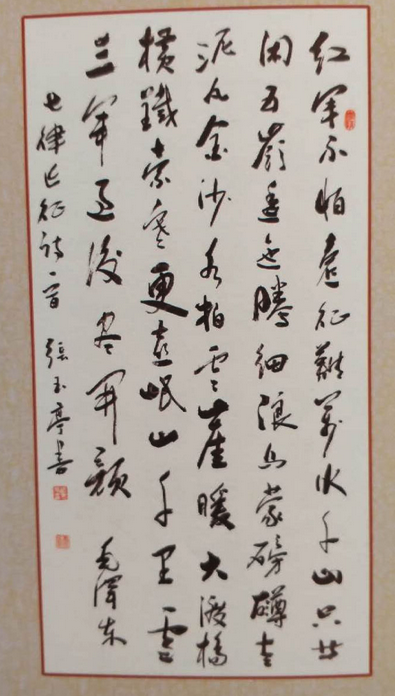 红军不怕远征难万水千山只等
闲五岭逶迤腾细浪乌蒙磅礴走
泥丸金沙水拍云崖暖大渡桥
横鐵索寒更喜岷山千里雪
三军过後尽开颜 毛泽东
七律长征诗一首 張玉亭书